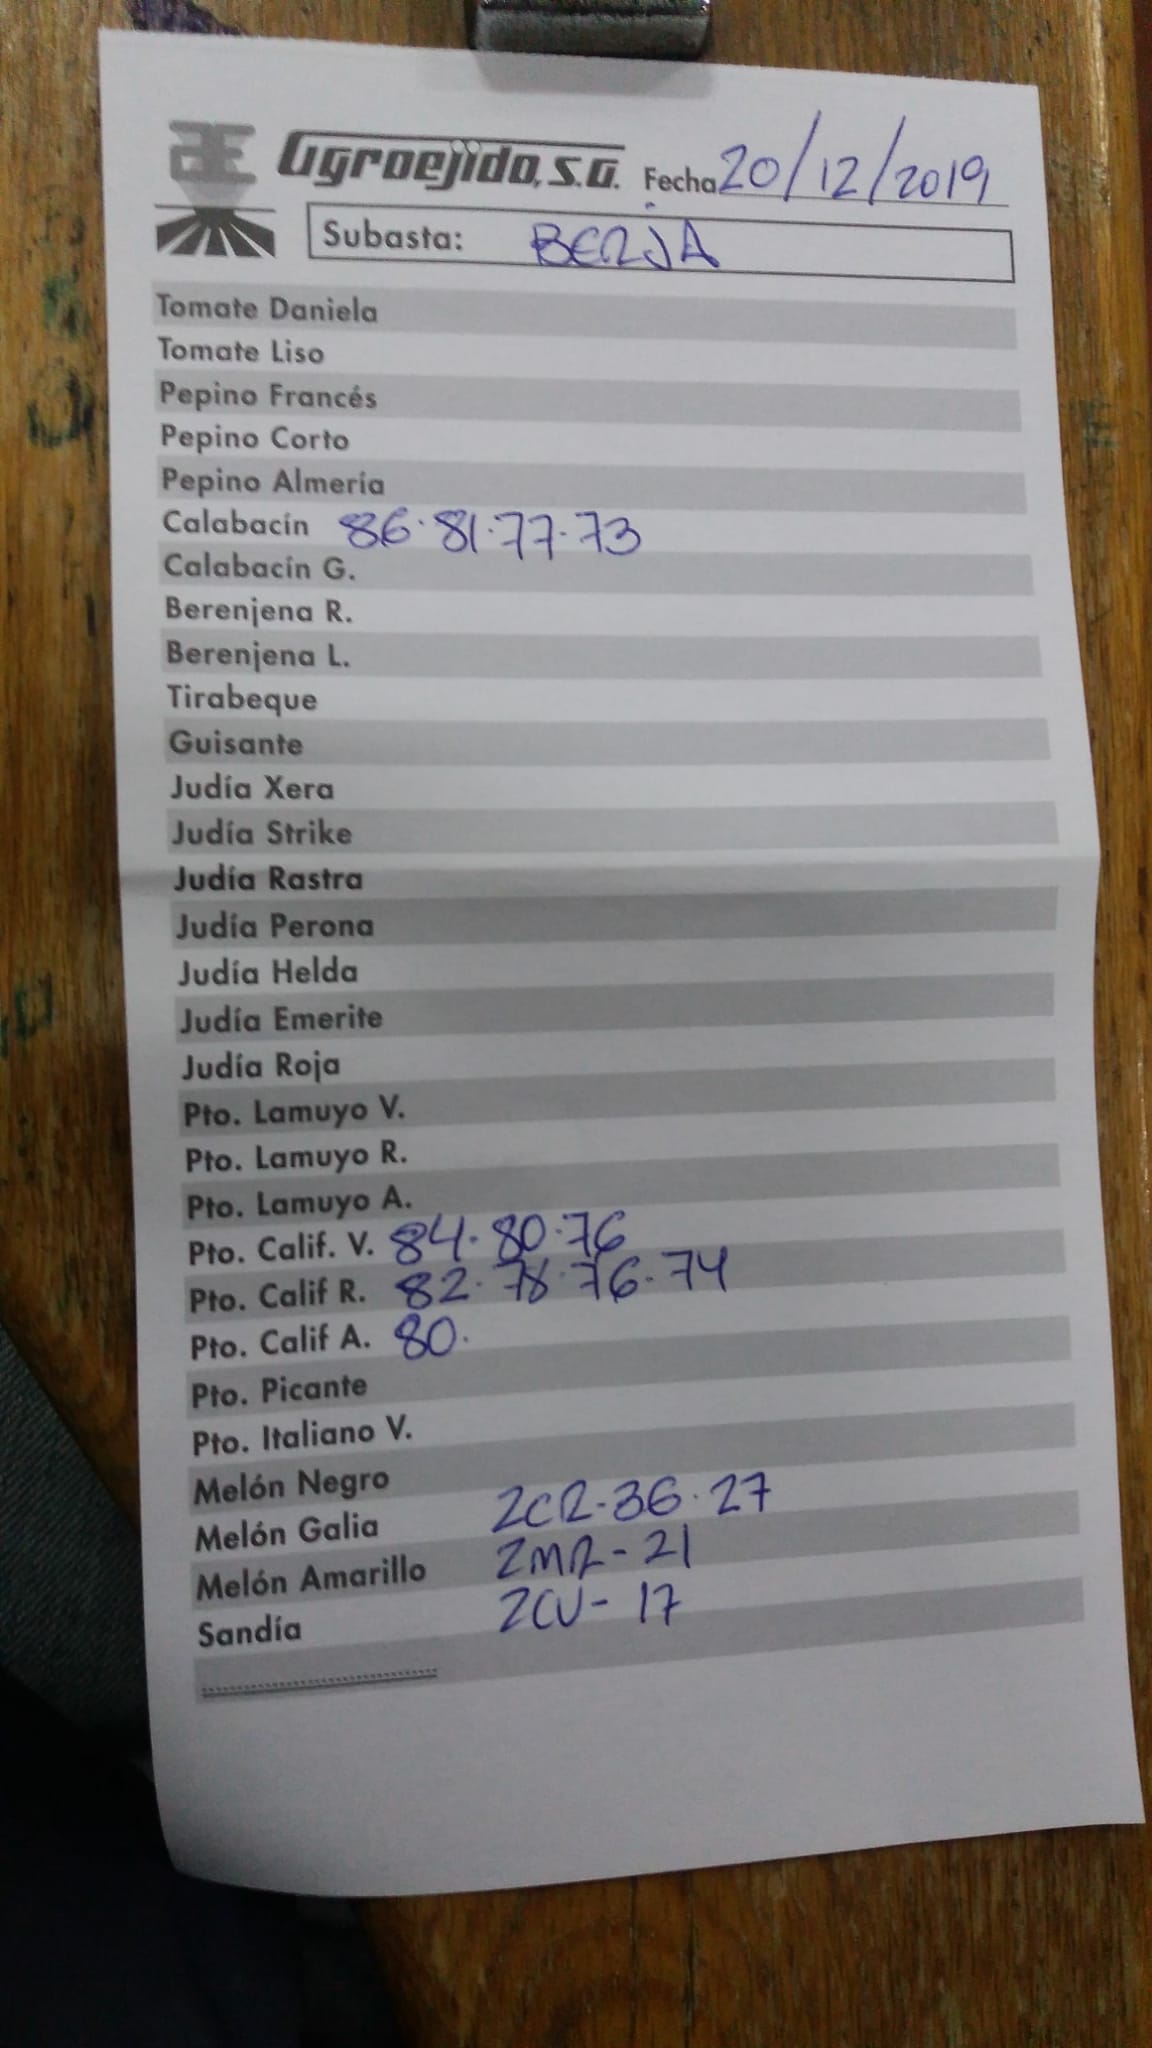 AE Agroejido, S.A. Fecha 20/12/2019
Subasta: BERJA
Tomate Daniela
Tomate Liso
Pepino Francés
Pepino Corto
Pepino Almería
Calabacín 86·81·77·73
Calabacín G.
Berenjena R.
Berenjena L.
Tirabeque
Guisante
Judía Xera
Judía Strike
Judía Rastra
Judía Perona
Judía Helda
Judía Emerite
Judía Roja
Pto. Lamuyo V.
Pto. Lamuyo R.
Pto. Lamuyo A.
Pto. Calif. V. 84·80·76
Pto. Calif R. 82·78·76·74
Pto. Calif A. 80.
Pto. Picante
Pto. Italiano V.
Melón Negro
Melón Galia ZCR-36·27
Melón Amarillo ZMR-21
Sandía ZCV-17